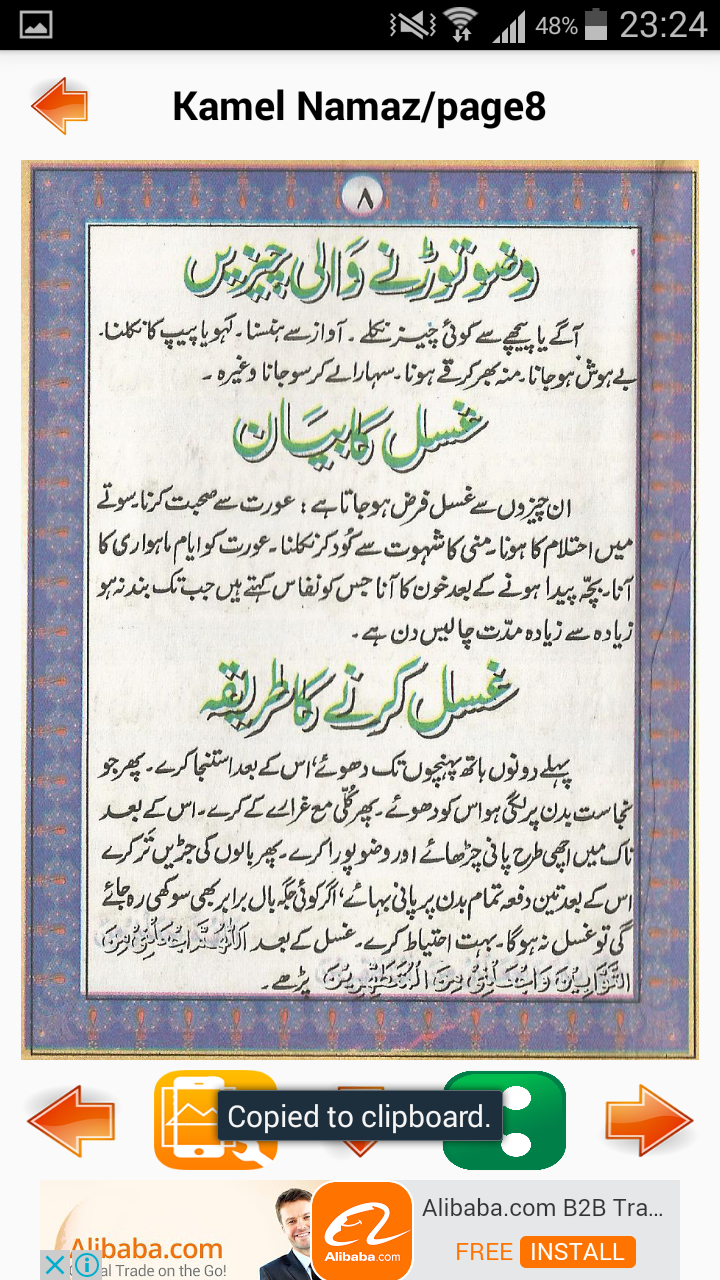 48% 23:24
Kamel Namaz/page8
۸
وضو توڑنے والی چیزیں
آگے یا پیچھے سے کوئی چیز نکلے ۔ آواز سے ہنسنا ۔ لہو یا پیپ کا نکلنا۔
بے ہوش ہو جانا۔ منہ بھر کر قے ہونا ۔ سہارا لے کر سو جانا وغیرہ ۔
غسل کا بیان
ان چیزوں سے غسل فرض ہو جاتا ہے : عورت سے صحبت کرنا۔ سوتے
میں احتلام کا ہونا۔ منی کا شہوت سے کُود کر نکلنا۔ عورت کو ایام ماہواری کا
آنا۔ بچّہ پیدا ہونے کے بعد خون کا آنا جس کو نفاس کہتے ہیں جب تک بند نہ ہو
زیادہ سے زیادہ مدّت چالیس دن ہے ۔
غسل کرنے کا طریقہ
پہلے دونوں ہاتھ پہنچوں تک دھوئے، اس کے بعد استنجا کرے ۔ پھر جو
نجاست بدن پر لگی ہو اس کو دھوئے ۔ پھر کُلّی مع غرارے کے کرے ۔ اس کے بعد
ناک میں اچھی طرح پانی چڑھائے اور وضو پورا کرے ۔ پھر بالوں کی جڑیں تَر کرے
اس کے بعد تین دفعہ تمام بدن پر پانی بہائے، اگر کوئی جگہ بال برابر بھی سوکھی رہ جائے
گی تو غسل نہ ہوگا ۔ بہت احتیاط کرے ۔ غسل کے بعد اَللّٰهُمَّ اجْعَلْنِيْ مِنَ
التَّوَّابِيْنَ وَاجْعَلْنِيْ مِنَ الْمُتَطَهِّرِيْنَ پڑھے ۔
Copied to clipboard.
Alibaba.com
al Trade on the Go!
Alibaba.com
Alibaba.com B2B Tra...
FREE INSTALL